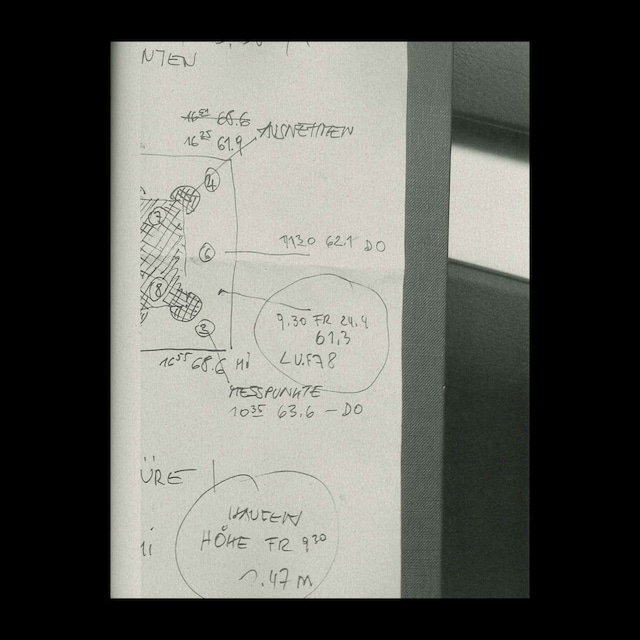 NTEN
16⁵² 68.6
16²⁵ 61.9
AUSNEHMEN
4
7
6
1130 62.1 DO
8
9.30 FR 24.4
61,3
LUF 78
2
16⁵⁵ 68.6 MI
MESSPUNKTE
10³⁵ 63,6 – DO
ÜRE
HAUFEN
HÖHE FR 9³⁰
.47 M